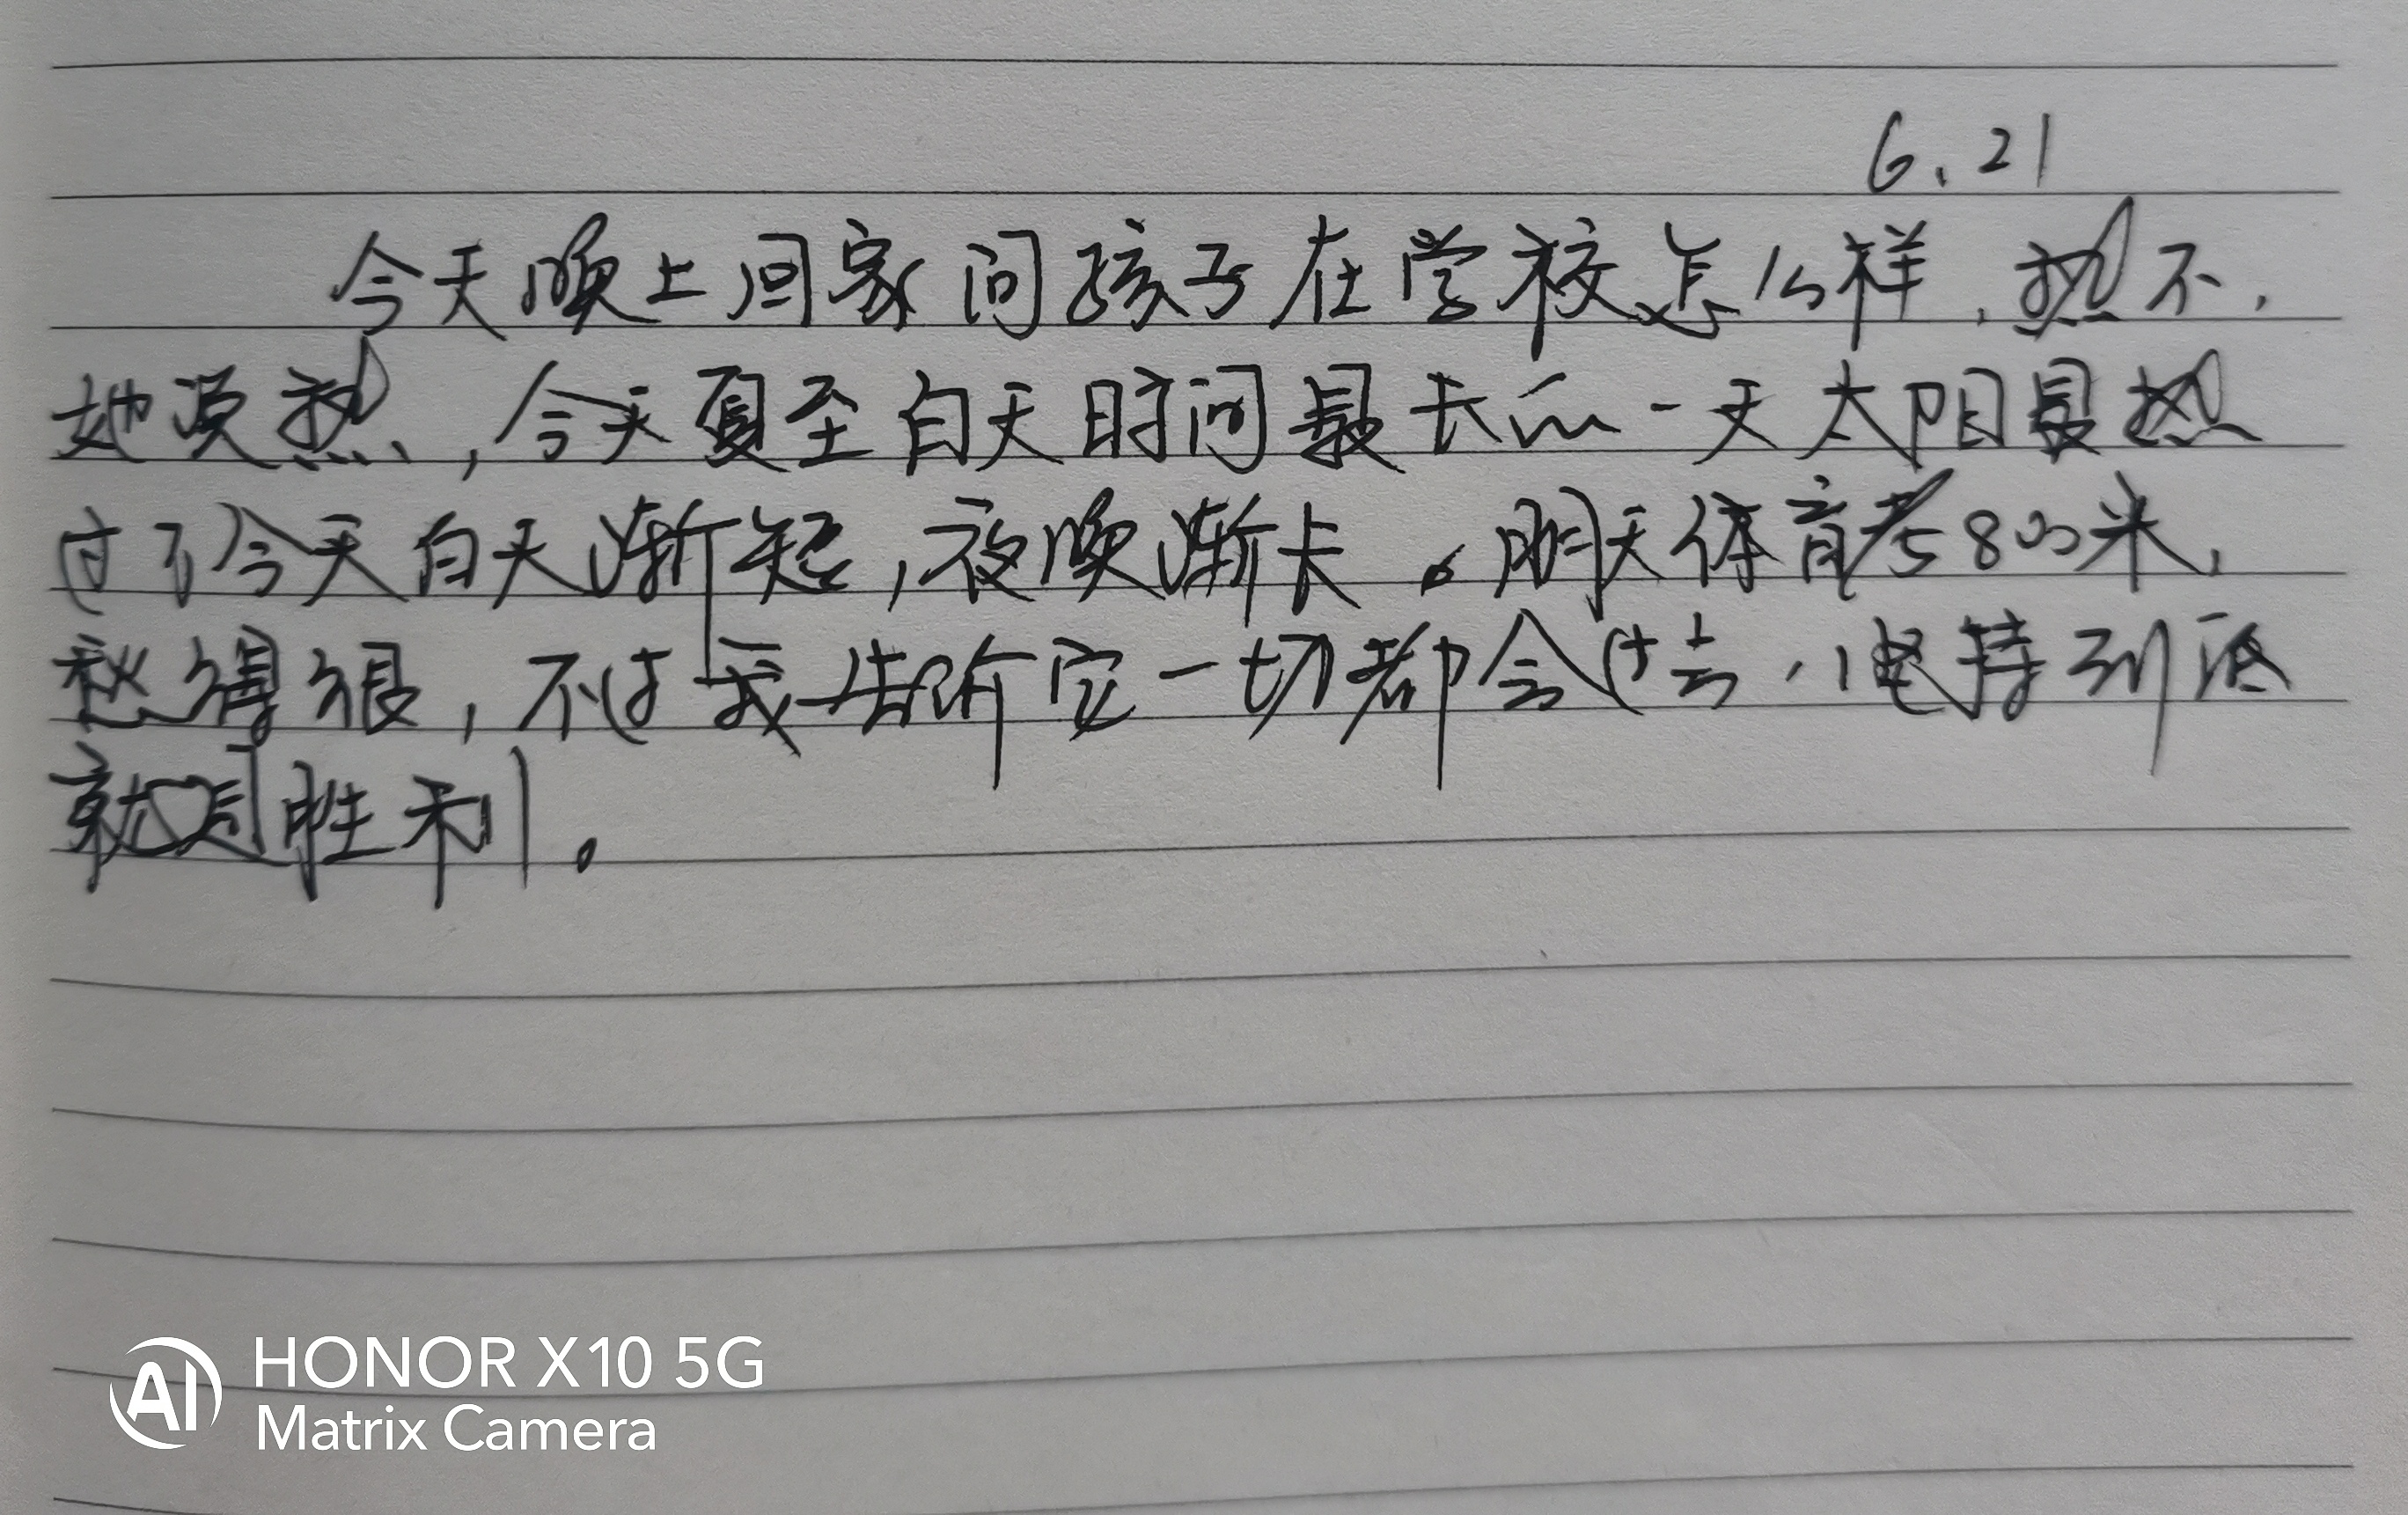 6.21
今天晚上回家问孩子在学校怎么样,热不,
她须热,今天夏至白天时间最长的一天太阳最热
过了今天白天渐短,夜晚渐长。明天体育考800米,
愁得很,不过我告诉它一切都会过去,坚持到底
就是胜利。
HONOR X10 5G
Matrix Camera